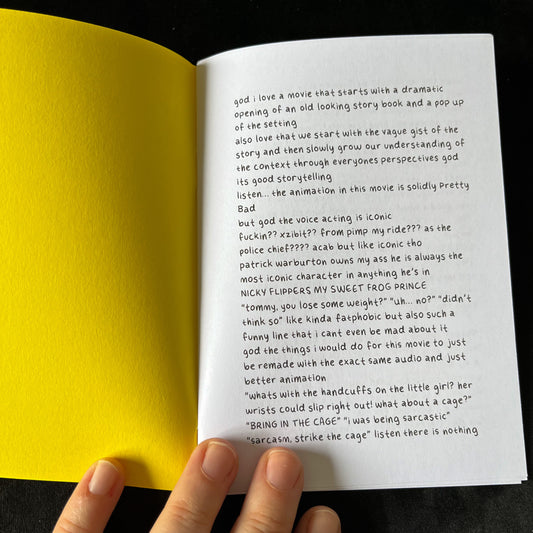 god i love a movie that starts with a dramatic
opening of an old looking story book and a pop up
of the setting
also love that we start with the vague gist of the
story and then slowly grow our understanding of
the context through everyones perspectives god
its good storytelling
listen... the animation in this movie is solidly Pretty
Bad
but god the voice acting is iconic
fuckin?? xzibit?? from pimp my ride??? as the
police chief???? acab but like iconic tho
patrick warburton owns my ass he is always the
most iconic character in anything he's in
NICKY FLIPPERS MY SWEET FROG PRINCE
"tommy, you lose some weight?" "uh... no?" "didn't
think so" like kinda fatphobic but also such a
funny line that i cant even be mad about it
god the things i would do for this movie to just
be remade with the exact same audio and just
better animation
"whats with the handcuffs on the little girl? her
wrists could slip right out! what about a cage?"
"BRING IN THE CAGE" "i was being sarcastic"
"sarcasm, strike the cage" listen there is nothing